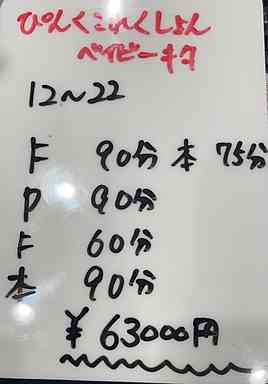 ぴんくこれくしょん
ベイビーキタ
12〜22
F 90分 本 75分
P 90分
F 60分
本 90分
¥63000円